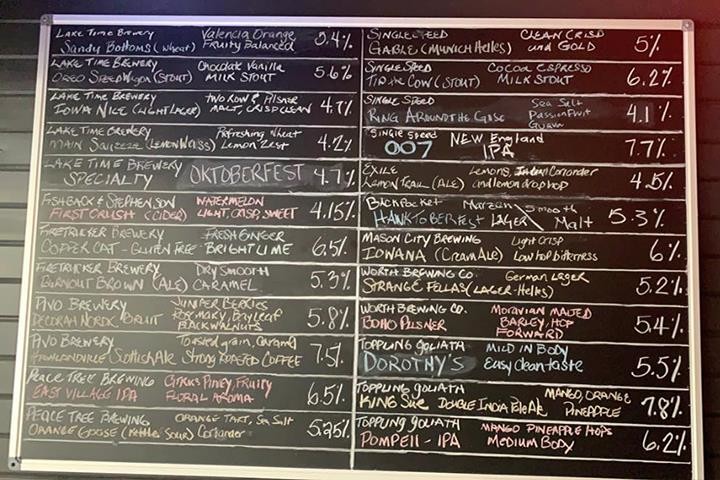 Lake Time Brewery Valencia Orange 5.4%
Sandy Bottoms (Wheat) Fruity Balanced
Lake Time Brewery Chocolate Vanilla 5.6%
Oreo Speed Wagon (Stout) Milk Stout
Lake Time Brewery Two Row & Pilsner 4.7%
Iowa Nice (Light Lager) Malt, Crisp Clean
Lake Time Brewery Refreshing Wheat 4.2%
Main Squeeze (Lemon Weiss) Lemon Zest
Lake Time Brewery Oktoberfest 4.7%
Specialty
Fishback & Stephenson Watermelon 4.15%
First Crush (Cider) Light, Crisp, Sweet
Firetrucker Brewery Fresh Ginger 6.5%
Copper Cat - Gluten Free - Bright Lime
Firetrucker Brewery Dry Smooth 5.3%
Burnout Brown (Ale) Caramel
Pivo Brewery Juniper Berries 5.8%
Decorah Nordic Bruit Rosemary, Bayleaf
Black Walnuts
Pivo Brewery Toasted grain, Caramel 7.5%
Scottish Ale Strong Roasted Coffee
Peace Tree Brewing Citrus Piney, Fruity 6.5%
East Village IPA Floral Aroma
Peace Tree Brewing Orange Tart, Sea Salt 5.25%
Orange Goose (Kettle Sour) Coriander
Single Speed Clean Crisp 5%
Gable (Munich Helles) and Gold
Single Speed Cocoa Espresso 6.2%
Tip the Cow (Stout) Milk Stout
Single Speed Sea Salt 4.1%
Ring Around the Gose Passionfruit
Guava
Single Speed New England 7.7%
007 IPA
Exile Lemons, Coriander 4.5%
Lemon Trail (Ale) and lemon drop hop
Backpocket Marzen Smooth 5.3%
Hanktoberfest Lager Malt
Mason City Brewing Light Crisp 6%
Iowana (Cream Ale) Low hop bitterness
Worth Brewing Co. German Lager 5.2%
Strange Fellas (Lager-Helles)
Worth Brewing Co. Moravian Malted 5.4%
Boho Pilsner Barley, Hop
Forward
Toppling Goliath Mild in Body 5.5%
Dorothy's Easy clean taste
Toppling Goliath Mango, Orange 7.8%
King Sue Double India Pale Ale Pineapple
Toppling Goliath Mango Pineapple Hops 6.2%
Pompeii - IPA Medium Body